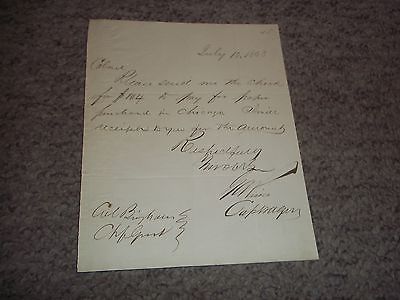 July 12, 1863
Colonel
Please send me the check
for $184 to pay for paper
purchased in Chicago
receipted to you for the amount
Respectfully
Yours
Col Bingham
Chf Q